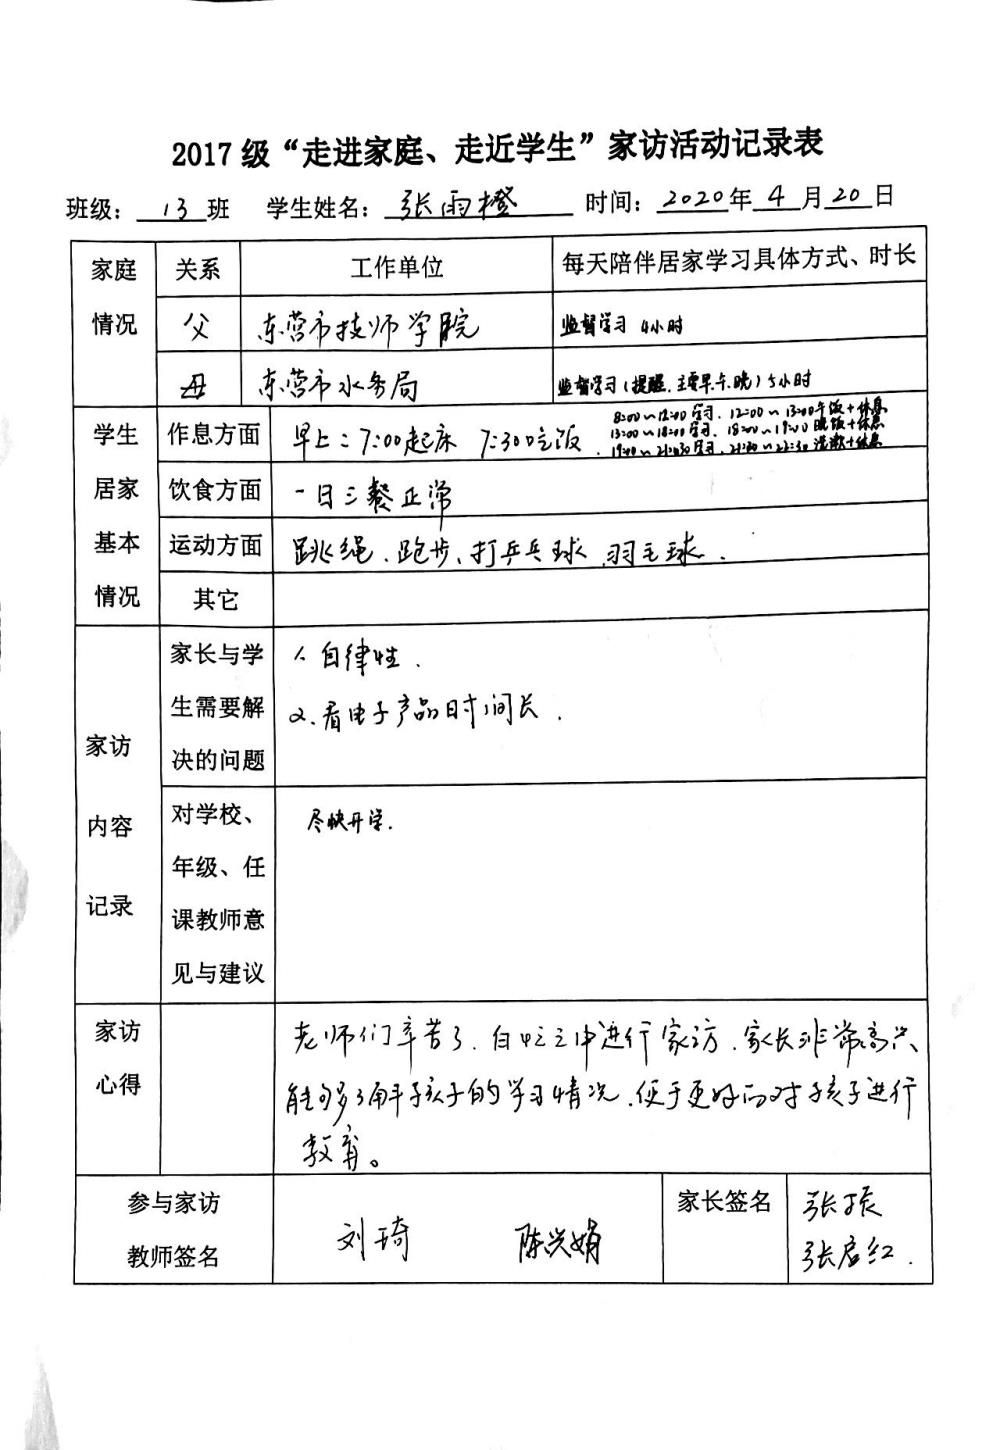 2017 级“走进家庭、走近学生”家访活动记录表
班级: 13 班 学生姓名: 张雨橙 时间: 2020 年 4 月 20 日
家庭情况 关系 工作单位 每天陪伴居家学习具体方式、时长
父 东营市技师学院 监督学习 4小时
母 东营市水务局 监督学习(提醒.主要早.午.晚)5小时
学生居家基本情况 作息方面 早上:7:00起床 7:30吃饭.
8:00~12:00学习.12:00~13:00午饭+休息
13:00~18:00学习.18:00~19:00晚饭+休息
19:00~21:30学习.21:30~22:30洗漱+休息
饮食方面 一日三餐正常
运动方面 跳绳.跑步、打乒乓球.羽毛球.
其它
家访内容记录
家长与学生需要解决的问题
1.自律性.
2.看电子产品时间长.
对学校、年级、任课教师意见与建议
尽快开学.
家访心得
老师们辛苦了.百忙之中进行家访.家长非常高兴、
能够了解孩子的学习情况.便于更好的对孩子进行
教育。
参与家访教师签名 刘琦 陈兴娟 家长签名 张
张启红.